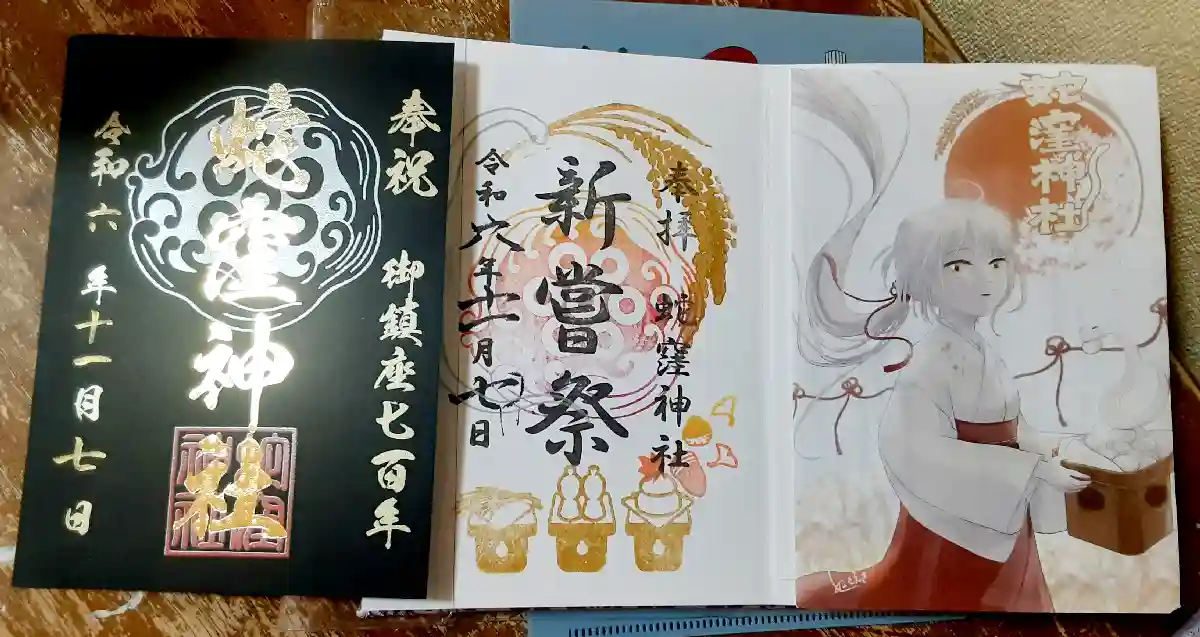 奉祝 御鎮座七百年
蛇窪神社
令和六年十一月七日
奉拝 蛇窪神社
新嘗祭
令和六年十一月七日
蛇窪神社